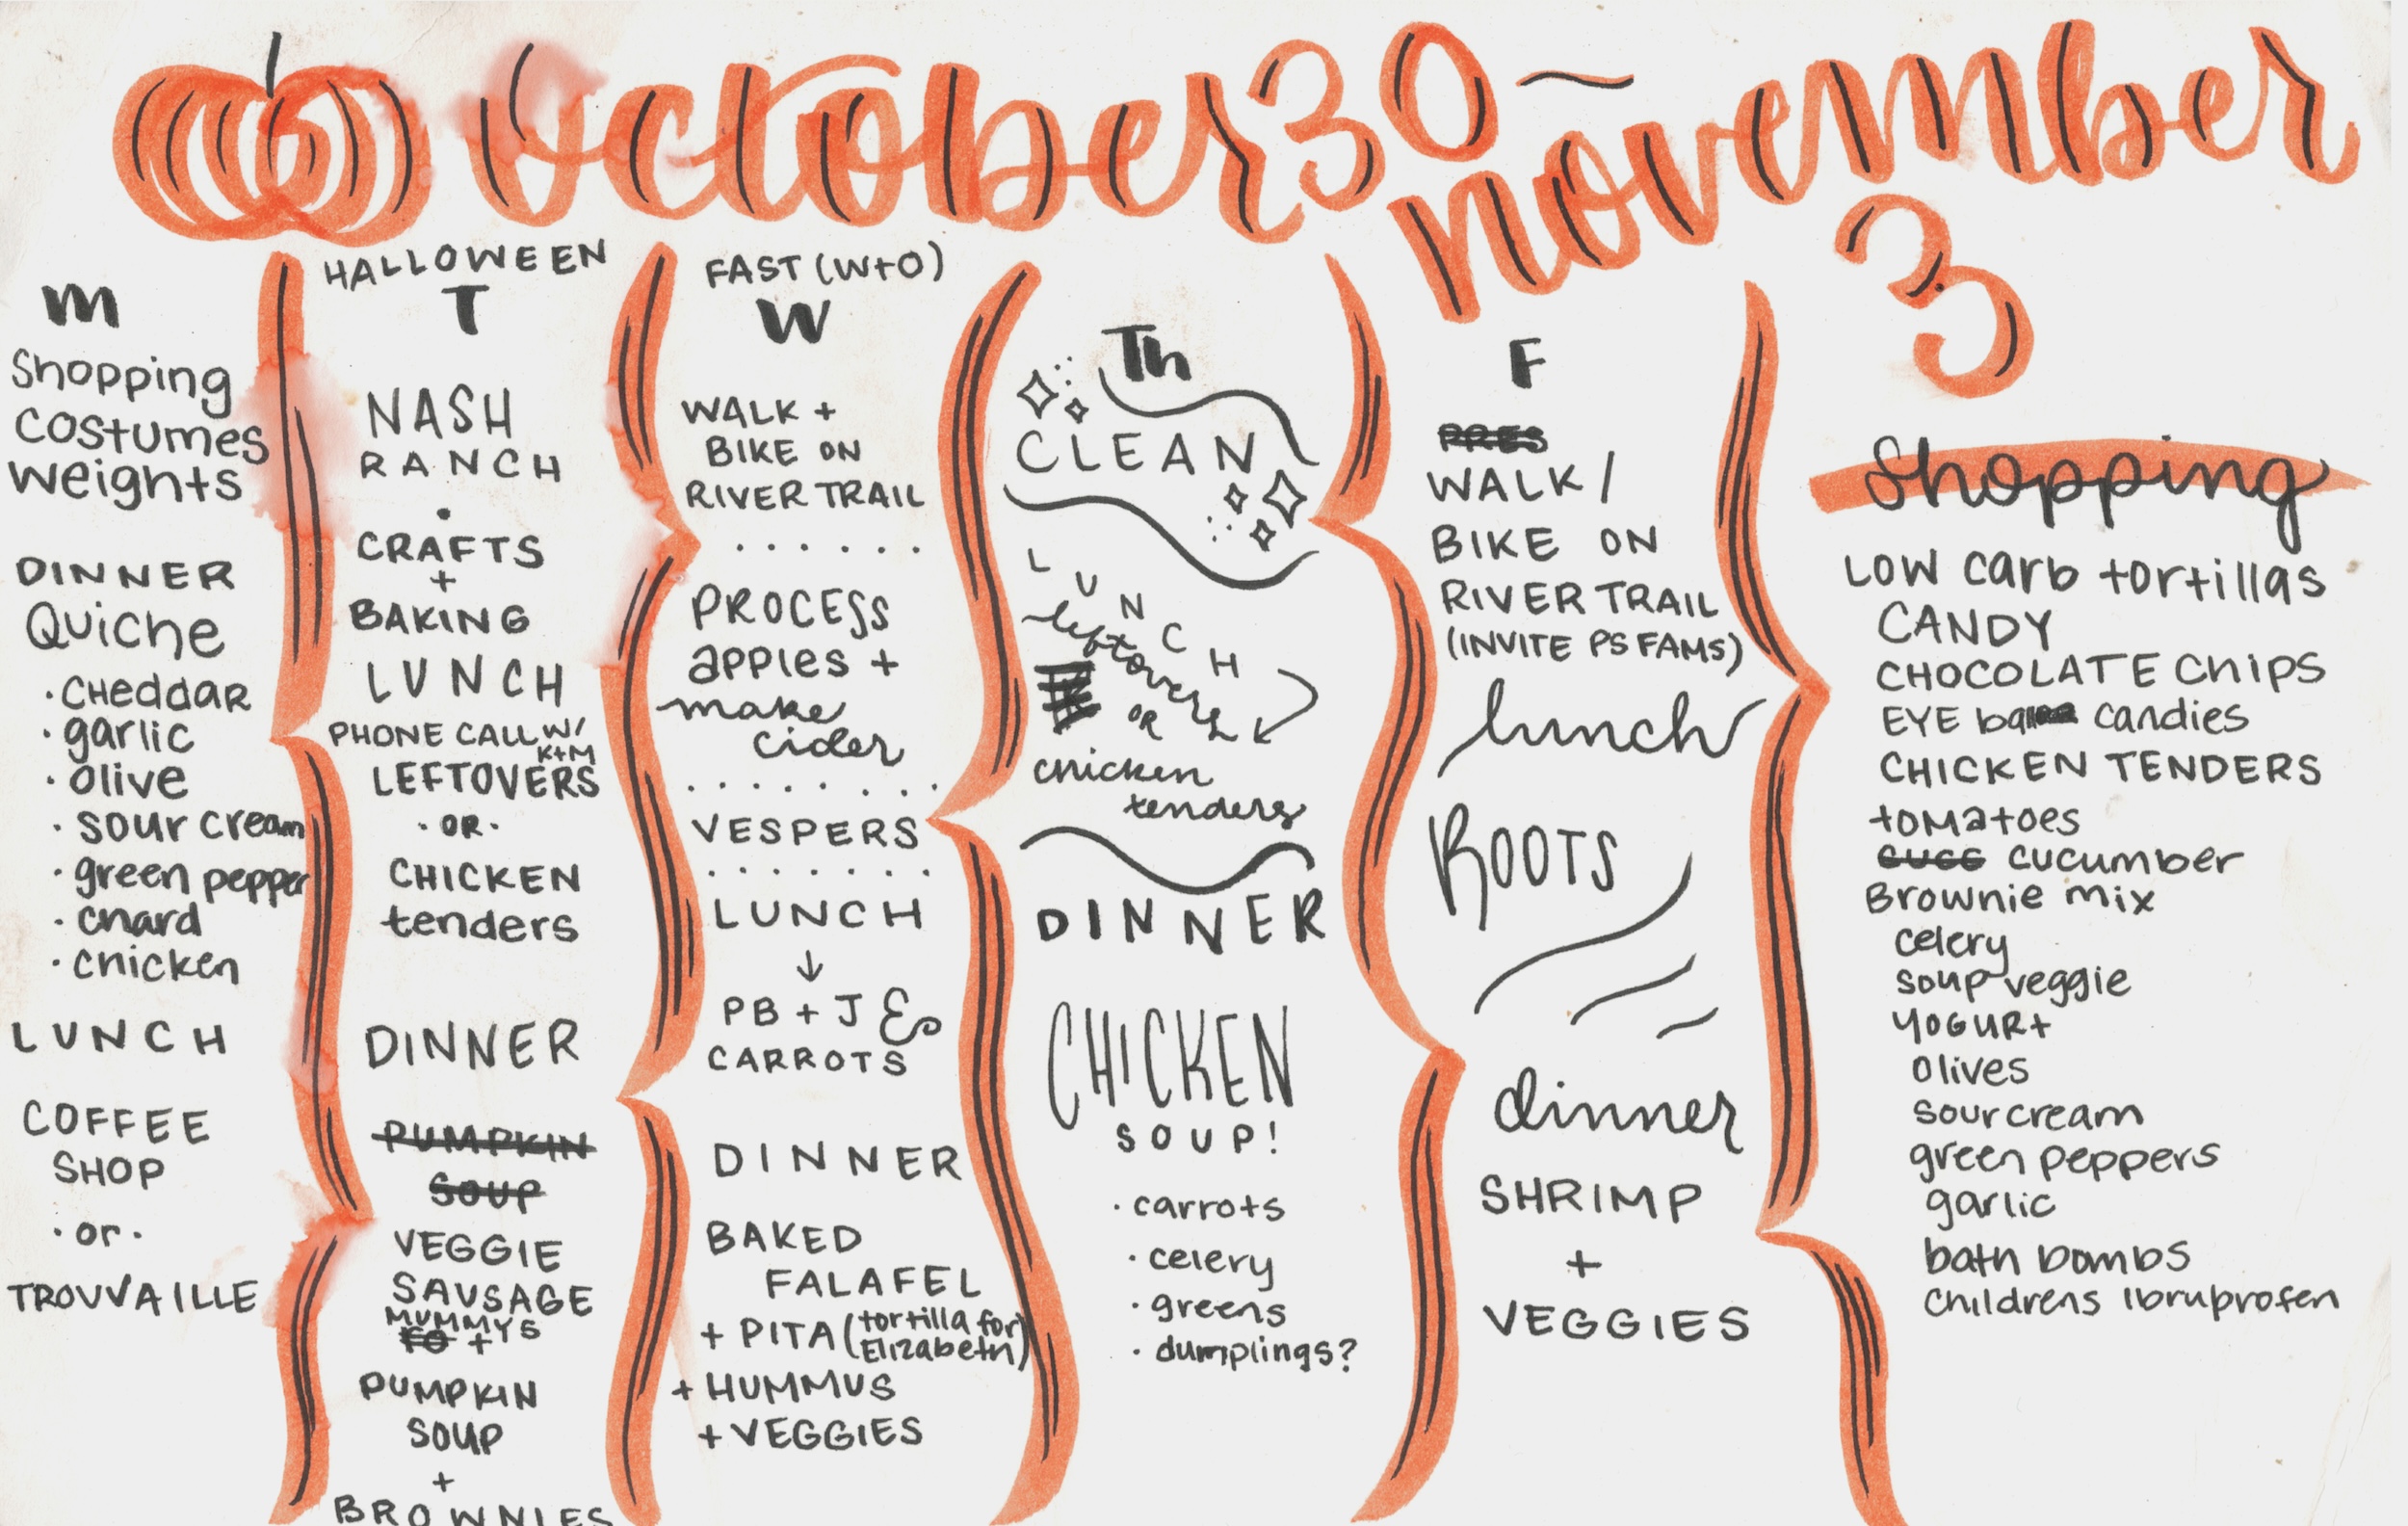 october 30 ~
november
3
M
Shopping
costumes
weights
DINNER
Quiche
· CHEDDAR
· garlic
· Olive
· sour cream
· green pepper
· chard
· chicken
LUNCH
COFFEE
SHOP
· or ·
TROUVAILLE
HALLOWEEN
T
NASH
RANCH
·
CRAFTS
+
BAKING
LUNCH
PHONE CALL W/
K+M
LEFTOVERS
· OR ·
CHICKEN
tenders
DINNER
PUMPKIN
SOUP
VEGGIE
SAUSAGE
MUMMYS
+
PUMPKIN
SOUP
+
BROWNIES
FAST (W+O)
W
WALK +
BIKE ON
RIVER TRAIL
PROCESS
apples +
make
cider
VESPERS
LUNCH
↓
PB + J &
CARROTS
DINNER
BAKED
FALAFEL
+ PITA (tortilla for
Elizabeth)
+ HUMMUS
+ VEGGIES
Th
CLEAN
LUNCH
leftovers
OR
chicken
tenders
DINNER
CHICKEN
SOUP!
· carrots
· celery
· greens
· dumplings?
F
PRES
WALK /
BIKE ON
RIVER TRAIL
(INVITE PS FAMS)
lunch
ROOTS
dinner
SHRIMP
+
VEGGIES
Shopping
LOW carb tortillas
CANDY
CHOCOLATE Chips
EYE candies
CHICKEN TENDERS
tomatoes
cucumber
Brownie mix
celery
soup veggie
YOGURt
Olives
sour cream
green peppers
garlic
bath bombs
childrens Ibruprofen